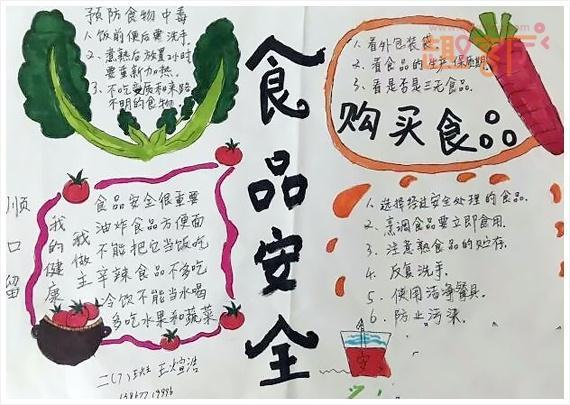 预防食物中毒
1、饭前便后需洗手。
2、煮熟后放置2小时
要重新加热。
3、不吃变质和来路
不明的食物
食品安全
1、看外包装袋
2、看食品的生产、保质期
3、看是否是三无食品。
购买食品
顺口留
我的健康
我做主
食品安全很重要
油炸食品方便面
不能把它当饭吃
辛辣食品不多吃
冷饮不能当水喝
多吃水果和蔬菜
1、选择经过安全处理的食品。
2、烹调食品要立即食用。
3、注意熟食品的贮存。
4、反复洗手。
5、使用洁净餐具。
6、防止污染。
二(7)班 王煊浩